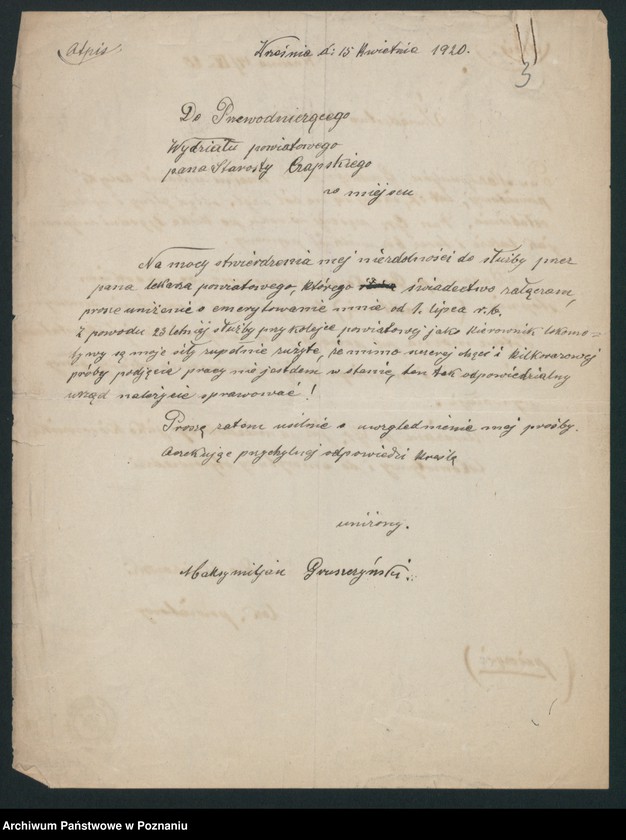 Odpis.
Września d: 15 Kwietnia 1920.
3
Do Przewodniczącego
Wydziału powiatowego
pana Starosty Czapskiego
w miejscu
Na mocy stwierdzenia mej niezdolności do służby przez
pana lekarza powiatowego, którego świadectwo załączam,
proszę uniżenie o emerytowanie mnie od 1. lipca r. b.
Z powodu 23 letniej służby przy kolejce powiatowej jako kierownik lokomo-
tywy są moje siły zupełnie zużyte, że mimo szczerej chęci i kilkorazowej
próby podjęcie pracy nie jestem w stanie, ten tak odpowiedzialny
urząd należycie sprawować!
Proszę zatem usilnie o uwzględnienie mej prośby.
Oczekując przychylnej odpowiedzi kreślę
uniżony.
Maksymiljan Gruszczyński.
Archiwum Państwowe w Poznaniu